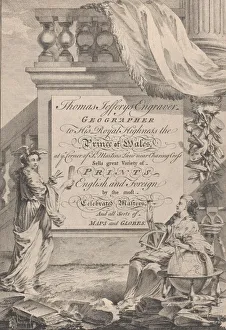 Thomas Jefferys Engraver
GEOGRAPHER
to His Royal Highness the
Prince of Wales,
at ye Corner of St. Martins Lane near Charing Cross
Sells great Variety of
PRINTS
English and Foreign
by the most
Celebrated Masters,
And all Sorts of
MAPS and GLOBES.